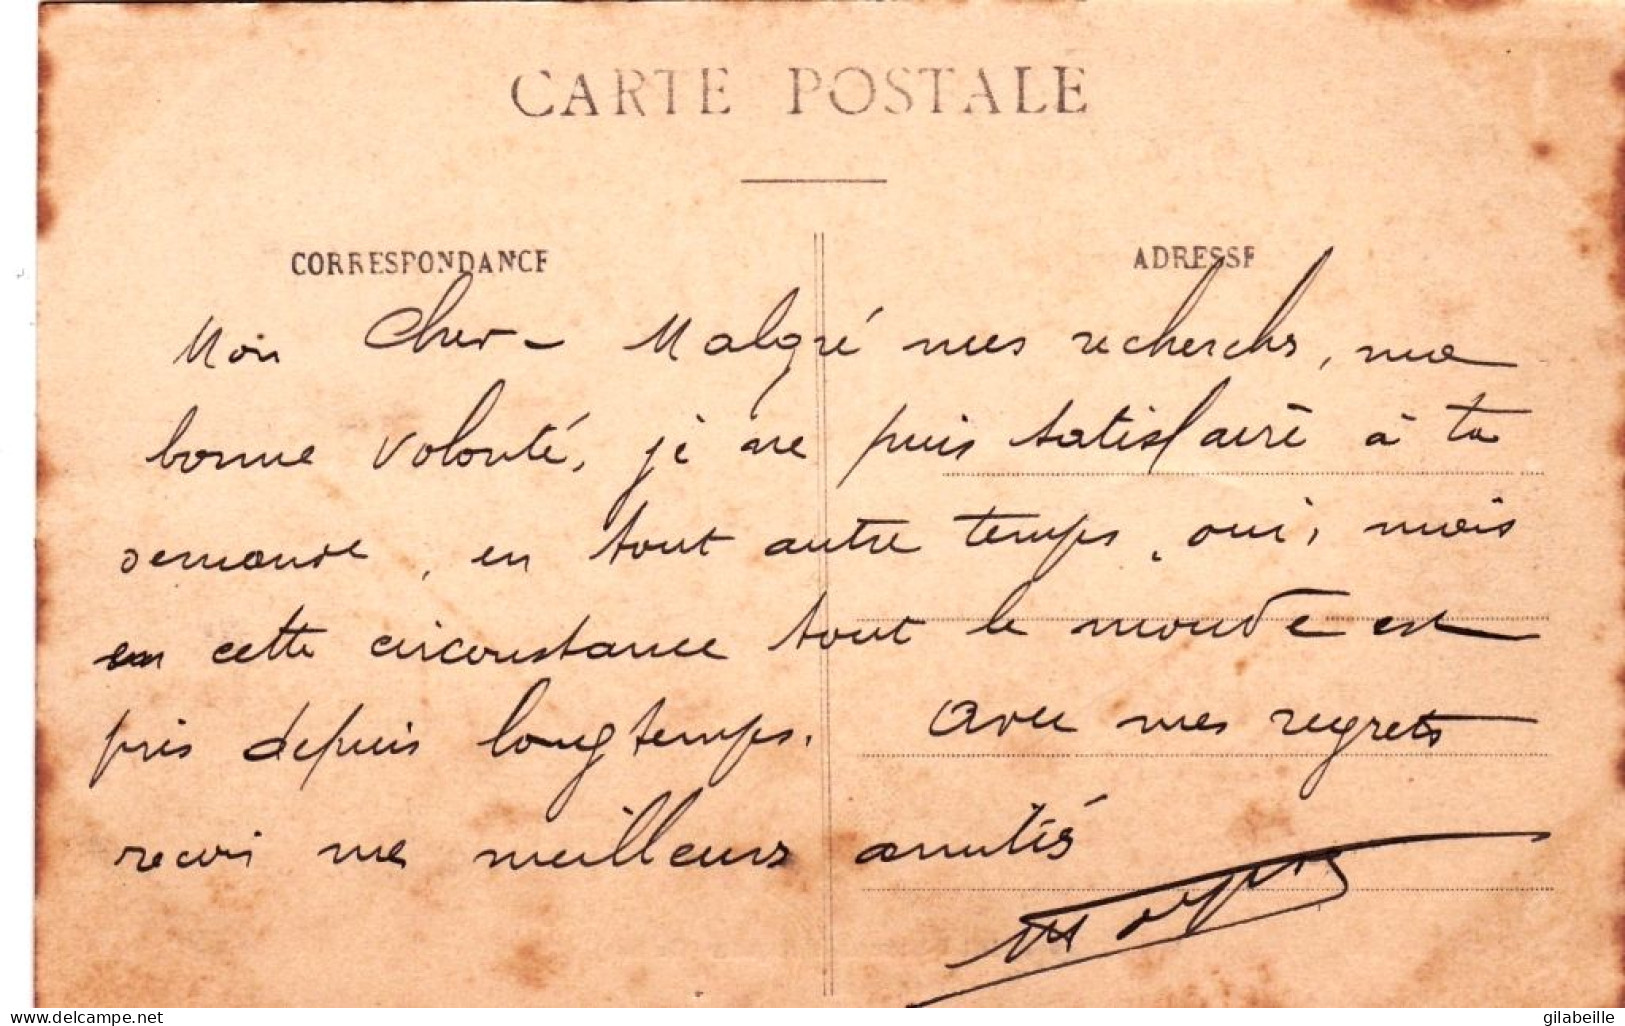 CARTE POSTALE
CORRESPONDANCE
ADRESSE
Mon Cher - Malgré mes recherches, ma
bonne volonté, je ne puis satisfaire à ta
demande, en tout autre temps, oui, mais
en cette circonstance tout le monde est
pris depuis longtemps. Avec mes regrets
reçois mes meilleurs amitiés
delcampe.net
gilabeille